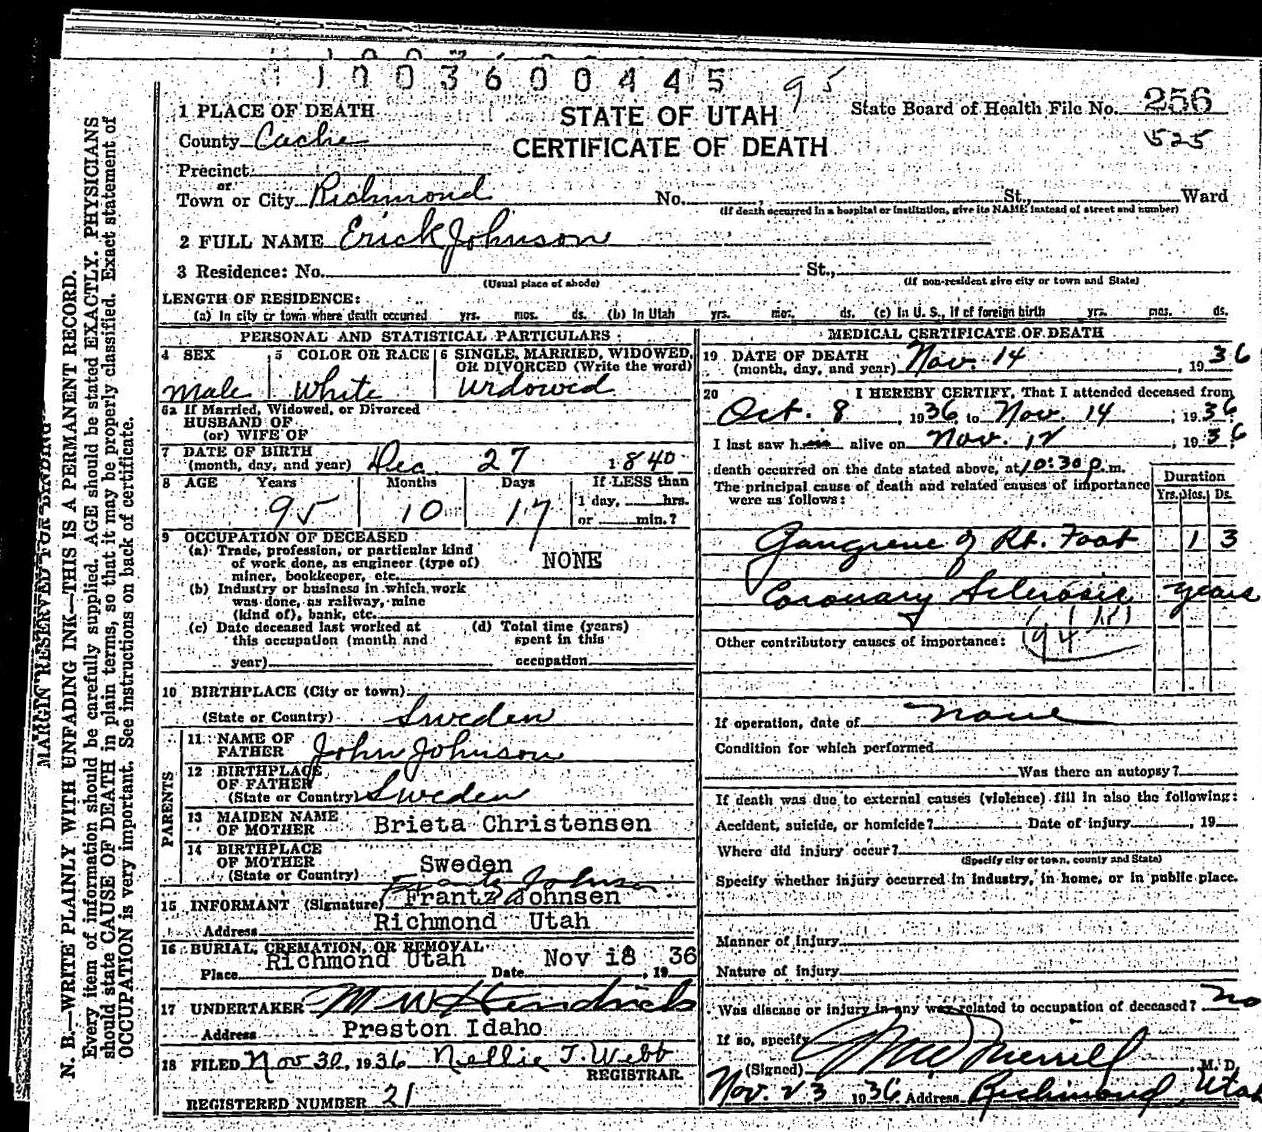 1003600445 95
1 PLACE OF DEATH
STATE OF UTAH
State Board of Health File No. 256
County Cache
CERTIFICATE OF DEATH
525
Precinct
or
Town or City Richmond No. St., Ward
(If death occurred in a hospital or institution, give its NAME instead of street and number)
2 FULL NAME Erick Johnson
3 Residence: No. St.,
(Usual place of abode) (If non-resident give city or town and State)
LENGTH OF RESIDENCE:
(a) In city or town where death occurred yrs. mos. ds. (b) In Utah yrs. mos. ds. (c) In U. S., if of foreign birth yrs. mos. ds.
PERSONAL AND STATISTICAL PARTICULARS
4 SEX
Male
5 COLOR OR RACE
White
6 SINGLE, MARRIED, WIDOWED,
OR DIVORCED (Write the word)
Widowed
6a If Married, Widowed, or Divorced
HUSBAND OF
(or) WIFE OF
7 DATE OF BIRTH
(month, day, and year) Dec 27 1840
8 AGE Years Months Days If LESS than
1 day, hrs.
95 10 17
or min.?
9 OCCUPATION OF DECEASED
(a) Trade, profession, or particular kind
of work done, as engineer (type of)
miner, bookkeeper, etc. NONE
(b) Industry or business in which work
was done, as railway, mine
(kind of), bank, etc.
(c) Date deceased last worked at
this occupation (month and
year)
(d) Total time (years)
spent in this
occupation
10 BIRTHPLACE (City or town)
(State or Country) Sweden
PARENTS
11 NAME OF
FATHER John Johnson
12 BIRTHPLACE
OF FATHER
(State or Country) Sweden
13 MAIDEN NAME
OF MOTHER Brieta Christensen
14 BIRTHPLACE
OF MOTHER
(State or Country) Sweden
Frantz Johnson
15 INFORMANT (Signature) Frantz Johnsen
Address Richmond Utah
16 BURIAL, CREMATION, OR REMOVAL
Place Richmond Utah Date Nov 18, 1936
17 UNDERTAKER M W Hendricks
Address Preston Idaho
18 FILED Nov 30, 1936 Nellie T. Webb
REGISTRAR.
REGISTERED NUMBER 21
MEDICAL CERTIFICATE OF DEATH
19 DATE OF DEATH
(month, day, and year) Nov. 14, 1936
20 I HEREBY CERTIFY, That I attended deceased from
Oct. 8, 1936, to Nov. 14, 1936
I last saw him alive on Nov. 12, 1936
death occurred on the date stated above, at 10:30 p.m.
The principal cause of death and related causes of importance
were as follows:
Duration
Yrs. Mos. Ds.
Gangrene of Rt. Foot 1 3
Coronary Sclerosis years
Other contributory causes of importance:
If operation, date of none
Condition for which performed
Was there an autopsy?
If death was due to external causes (violence) fill in also the following:
Accident, suicide, or homicide? Date of injury, 19
Where did injury occur?
(Specify city or town, county and State)
Specify whether injury occurred in industry, in home, or in public place.
Manner of Injury
Nature of injury
Was disease or injury in any way related to occupation of deceased? no
If so, specify
(Signed) Merrill, M. D.
Nov. 23 1936. Address Richmond, Utah
MARGIN RESERVED FOR BINDING
N. B.—WRITE PLAINLY WITH UNFADING INK—THIS IS A PERMANENT RECORD.
Every item of information should be carefully supplied. AGE should be stated EXACTLY. PHYSICIANS
should state CAUSE OF DEATH in plain terms, so that it may be properly classified. Exact statement of
OCCUPATION is very important. See instructions on back of certificate.